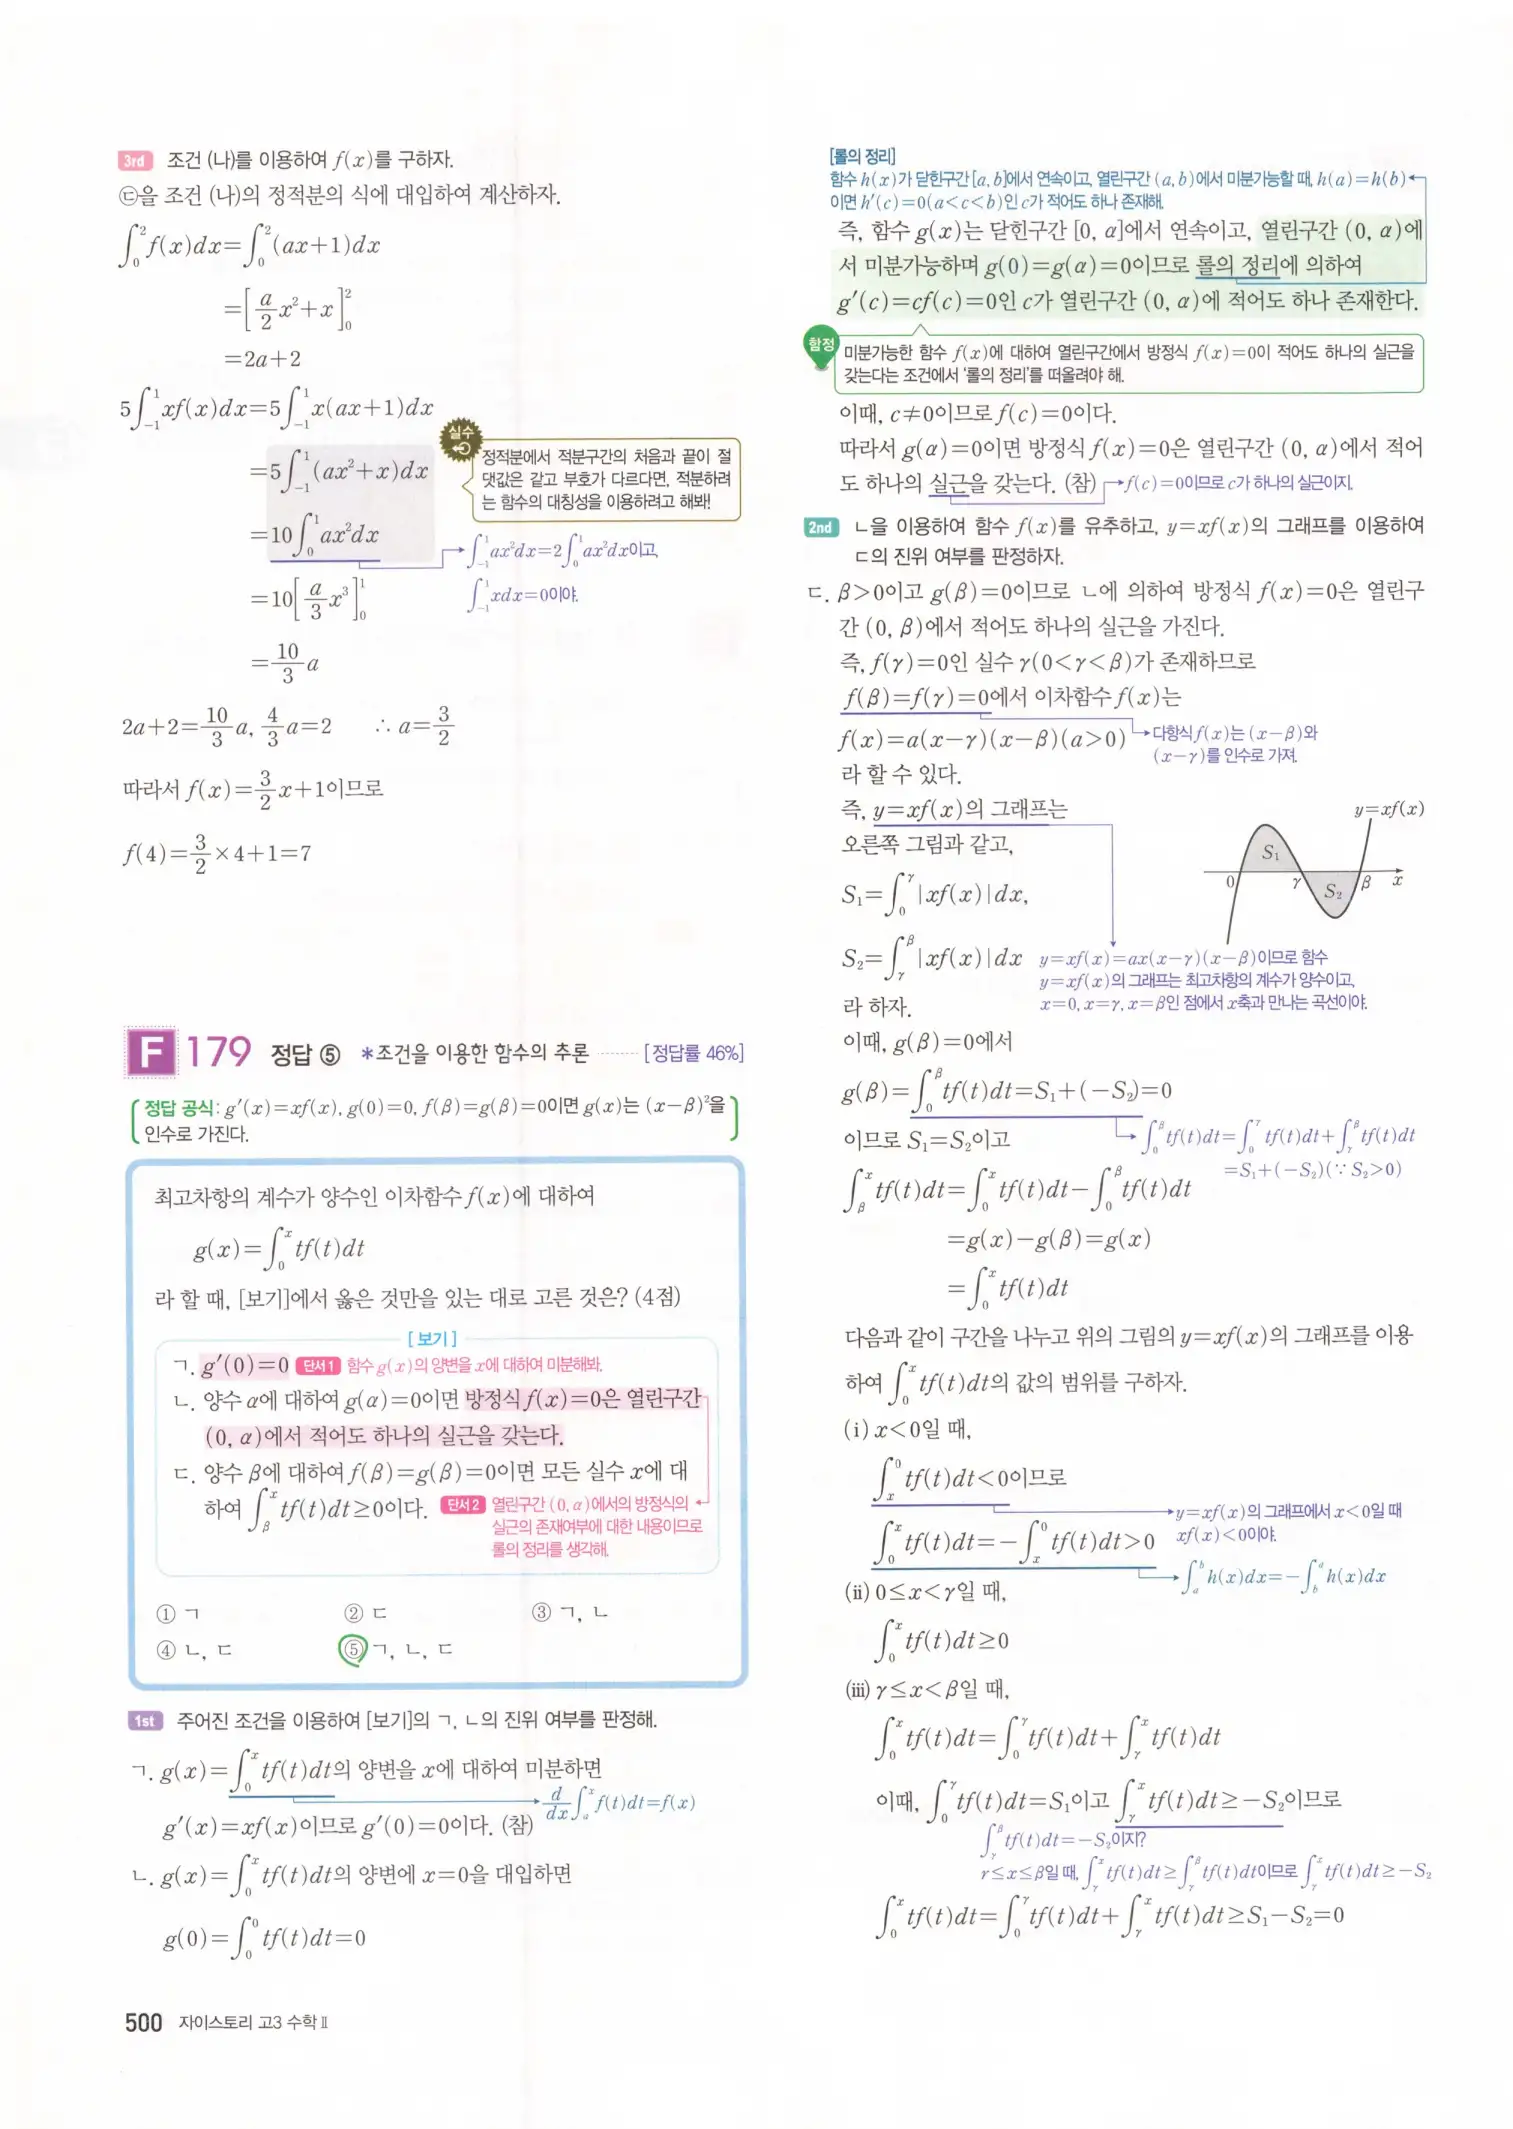 3rd 조건 (나)를 이용하여 f(x)를 구하자.
㉢을 조건 (나)의 정적분의 식에 대입하여 계산하자.
∫₀² f(x)dx=∫₀² (ax+1)dx
=[a/2 x²+x]₀²
=2a+2
5∫₋₁¹ xf(x)dx=5∫₋₁¹ x(ax+1)dx
=5∫₋₁¹ (ax²+x)dx
=10∫₀¹ ax²dx
=10[a/3 x³]₀¹
=10/3 a
실수
정적분에서 적분구간의 처음과 끝이 절
댓값은 같고 부호가 다르다면, 적분하려
는 함수의 대칭성을 이용하려고 해봐!
∫₋₁¹ ax²dx=2∫₀¹ ax²dx이고,
∫₋₁¹ xdx=0이야.
2a+2=10/3 a, 4/3 a=2 ∴ a=3/2
따라서 f(x)=3/2 x+1이므로
f(4)=3/2×4+1=7
F 179 정답 ⑤ *조건을 이용한 함수의 추론 ········ [정답률 46%]
정답 공식: g′(x)=xf(x), g(0)=0, f(β)=g(β)=0이면 g(x)는 (x−β)²을
인수로 가진다.
최고차항의 계수가 양수인 이차함수 f(x)에 대하여
g(x)=∫₀ˣ tf(t)dt
라 할 때, [보기]에서 옳은 것만을 있는 대로 고른 것은? (4점)
[보기]
ㄱ. g′(0)=0 단서1 함수 g(x)의 양변을 x에 대하여 미분해봐.
ㄴ. 양수 α에 대하여 g(α)=0이면 방정식 f(x)=0은 열린구간
(0, α)에서 적어도 하나의 실근을 갖는다.
ㄷ. 양수 β에 대하여 f(β)=g(β)=0이면 모든 실수 x에 대
하여 ∫_β^x tf(t)dt≥0이다. 단서2 열린구간 (0, α)에서의 방정식의
실근의 존재여부에 대한 내용이므로
롤의 정리를 생각해.
① ㄱ ② ㄷ ③ ㄱ, ㄴ
④ ㄴ, ㄷ ⑤ ㄱ, ㄴ, ㄷ
1st 주어진 조건을 이용하여 [보기]의 ㄱ, ㄴ의 진위 여부를 판정해.
ㄱ. g(x)=∫₀ˣ tf(t)dt의 양변을 x에 대하여 미분하면
d/dx ∫_a^x f(t)dt=f(x)
g′(x)=xf(x)이므로 g′(0)=0이다. (참)
ㄴ. g(x)=∫₀ˣ tf(t)dt의 양변에 x=0을 대입하면
g(0)=∫₀⁰ tf(t)dt=0
500 자이스토리 고3 수학Ⅱ
[롤의 정리]
함수 h(x)가 닫힌구간 [a, b]에서 연속이고, 열린구간 (a, b)에서 미분가능할 때, h(a)=h(b)
이면 h′(c)=0(a<c<b)인 c가 적어도 하나 존재해.
즉, 함수 g(x)는 닫힌구간 [0, α]에서 연속이고, 열린구간 (0, α)에
서 미분가능하며 g(0)=g(α)=0이므로 롤의 정리에 의하여
g′(c)=cf(c)=0인 c가 열린구간 (0, α)에 적어도 하나 존재한다.
함정
미분가능한 함수 f(x)에 대하여 열린구간에서 방정식 f(x)=0이 적어도 하나의 실근을
갖는다는 조건에서 '롤의 정리'를 떠올려야 해.
이때, c≠0이므로 f(c)=0이다.
따라서 g(α)=0이면 방정식 f(x)=0은 열린구간 (0, α)에서 적어
도 하나의 실근을 갖는다. (참) f(c)=0이므로 c가 하나의 실근이지.
2nd ㄴ을 이용하여 함수 f(x)를 유추하고, y=xf(x)의 그래프를 이용하여
ㄷ의 진위 여부를 판정하자.
ㄷ. β>0이고 g(β)=0이므로 ㄴ에 의하여 방정식 f(x)=0은 열린구
간 (0, β)에서 적어도 하나의 실근을 가진다.
즉, f(γ)=0인 실수 γ(0<γ<β)가 존재하므로
f(β)=f(γ)=0에서 이차함수 f(x)는
f(x)=a(x−γ)(x−β)(a>0)
다항식 f(x)는 (x−β)와
(x−γ)를 인수로 가져.
라 할 수 있다.
즉, y=xf(x)의 그래프는
오른쪽 그림과 같고,
S₁=∫₀^γ |xf(x)|dx,
S₂=∫_γ^β |xf(x)|dx
라 하자.
y=xf(x)
S₁
0 γ S₂ β x
y=xf(x)=ax(x−γ)(x−β)이므로 함수
y=xf(x)의 그래프는 최고차항의 계수가 양수이고,
x=0, x=γ, x=β인 점에서 x축과 만나는 곡선이야.
이때, g(β)=0에서
g(β)=∫₀^β tf(t)dt=S₁+(−S₂)=0
이므로 S₁=S₂이고
∫₀^β tf(t)dt=∫₀^γ tf(t)dt+∫_γ^β tf(t)dt
=S₁+(−S₂)(∵ S₂>0)
∫_β^x tf(t)dt=∫₀ˣ tf(t)dt−∫₀^β tf(t)dt
=g(x)−g(β)=g(x)
=∫₀ˣ tf(t)dt
다음과 같이 구간을 나누고 위의 그림의 y=xf(x)의 그래프를 이용
하여 ∫₀ˣ tf(t)dt의 값의 범위를 구하자.
(ⅰ) x<0일 때,
∫ₓ⁰ tf(t)dt<0이므로
y=xf(x)의 그래프에서 x<0일 때
xf(x)<0이야.
∫₀ˣ tf(t)dt=−∫ₓ⁰ tf(t)dt>0
∫_a^b h(x)dx=−∫_b^a h(x)dx
(ⅱ) 0≤x<γ일 때,
∫₀ˣ tf(t)dt≥0
(ⅲ) γ≤x<β일 때,
∫₀ˣ tf(t)dt=∫₀^γ tf(t)dt+∫_γ^x tf(t)dt
이때, ∫₀^γ tf(t)dt=S₁이고 ∫_γ^x tf(t)dt≥−S₂이므로
∫_γ^β tf(t)dt=−S₂이지?
r≤x≤β일 때, ∫_γ^x tf(t)dt≥∫_γ^β tf(t)dt이므로 ∫_γ^x tf(t)dt≥−S₂
∫₀ˣ tf(t)dt=∫₀^γ tf(t)dt+∫_γ^x tf(t)dt≥S₁−S₂=0